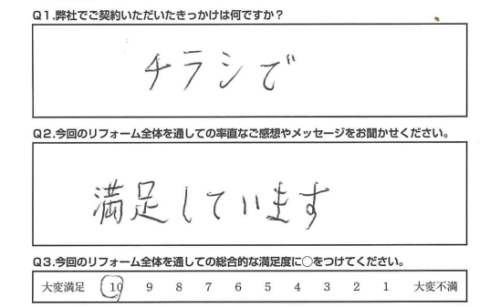 Q1.弊社でご契約いただいたきっかけは何ですか？
チラシで
Q2.今回のリフォーム全体を通しての率直なご感想やメッセージをお聞かせください。
満足しています
Q3.今回のリフォーム全体を通しての総合的な満足度に○をつけてください。
大変満足 10 9 8 7 6 5 4 3 2 1 大変不満